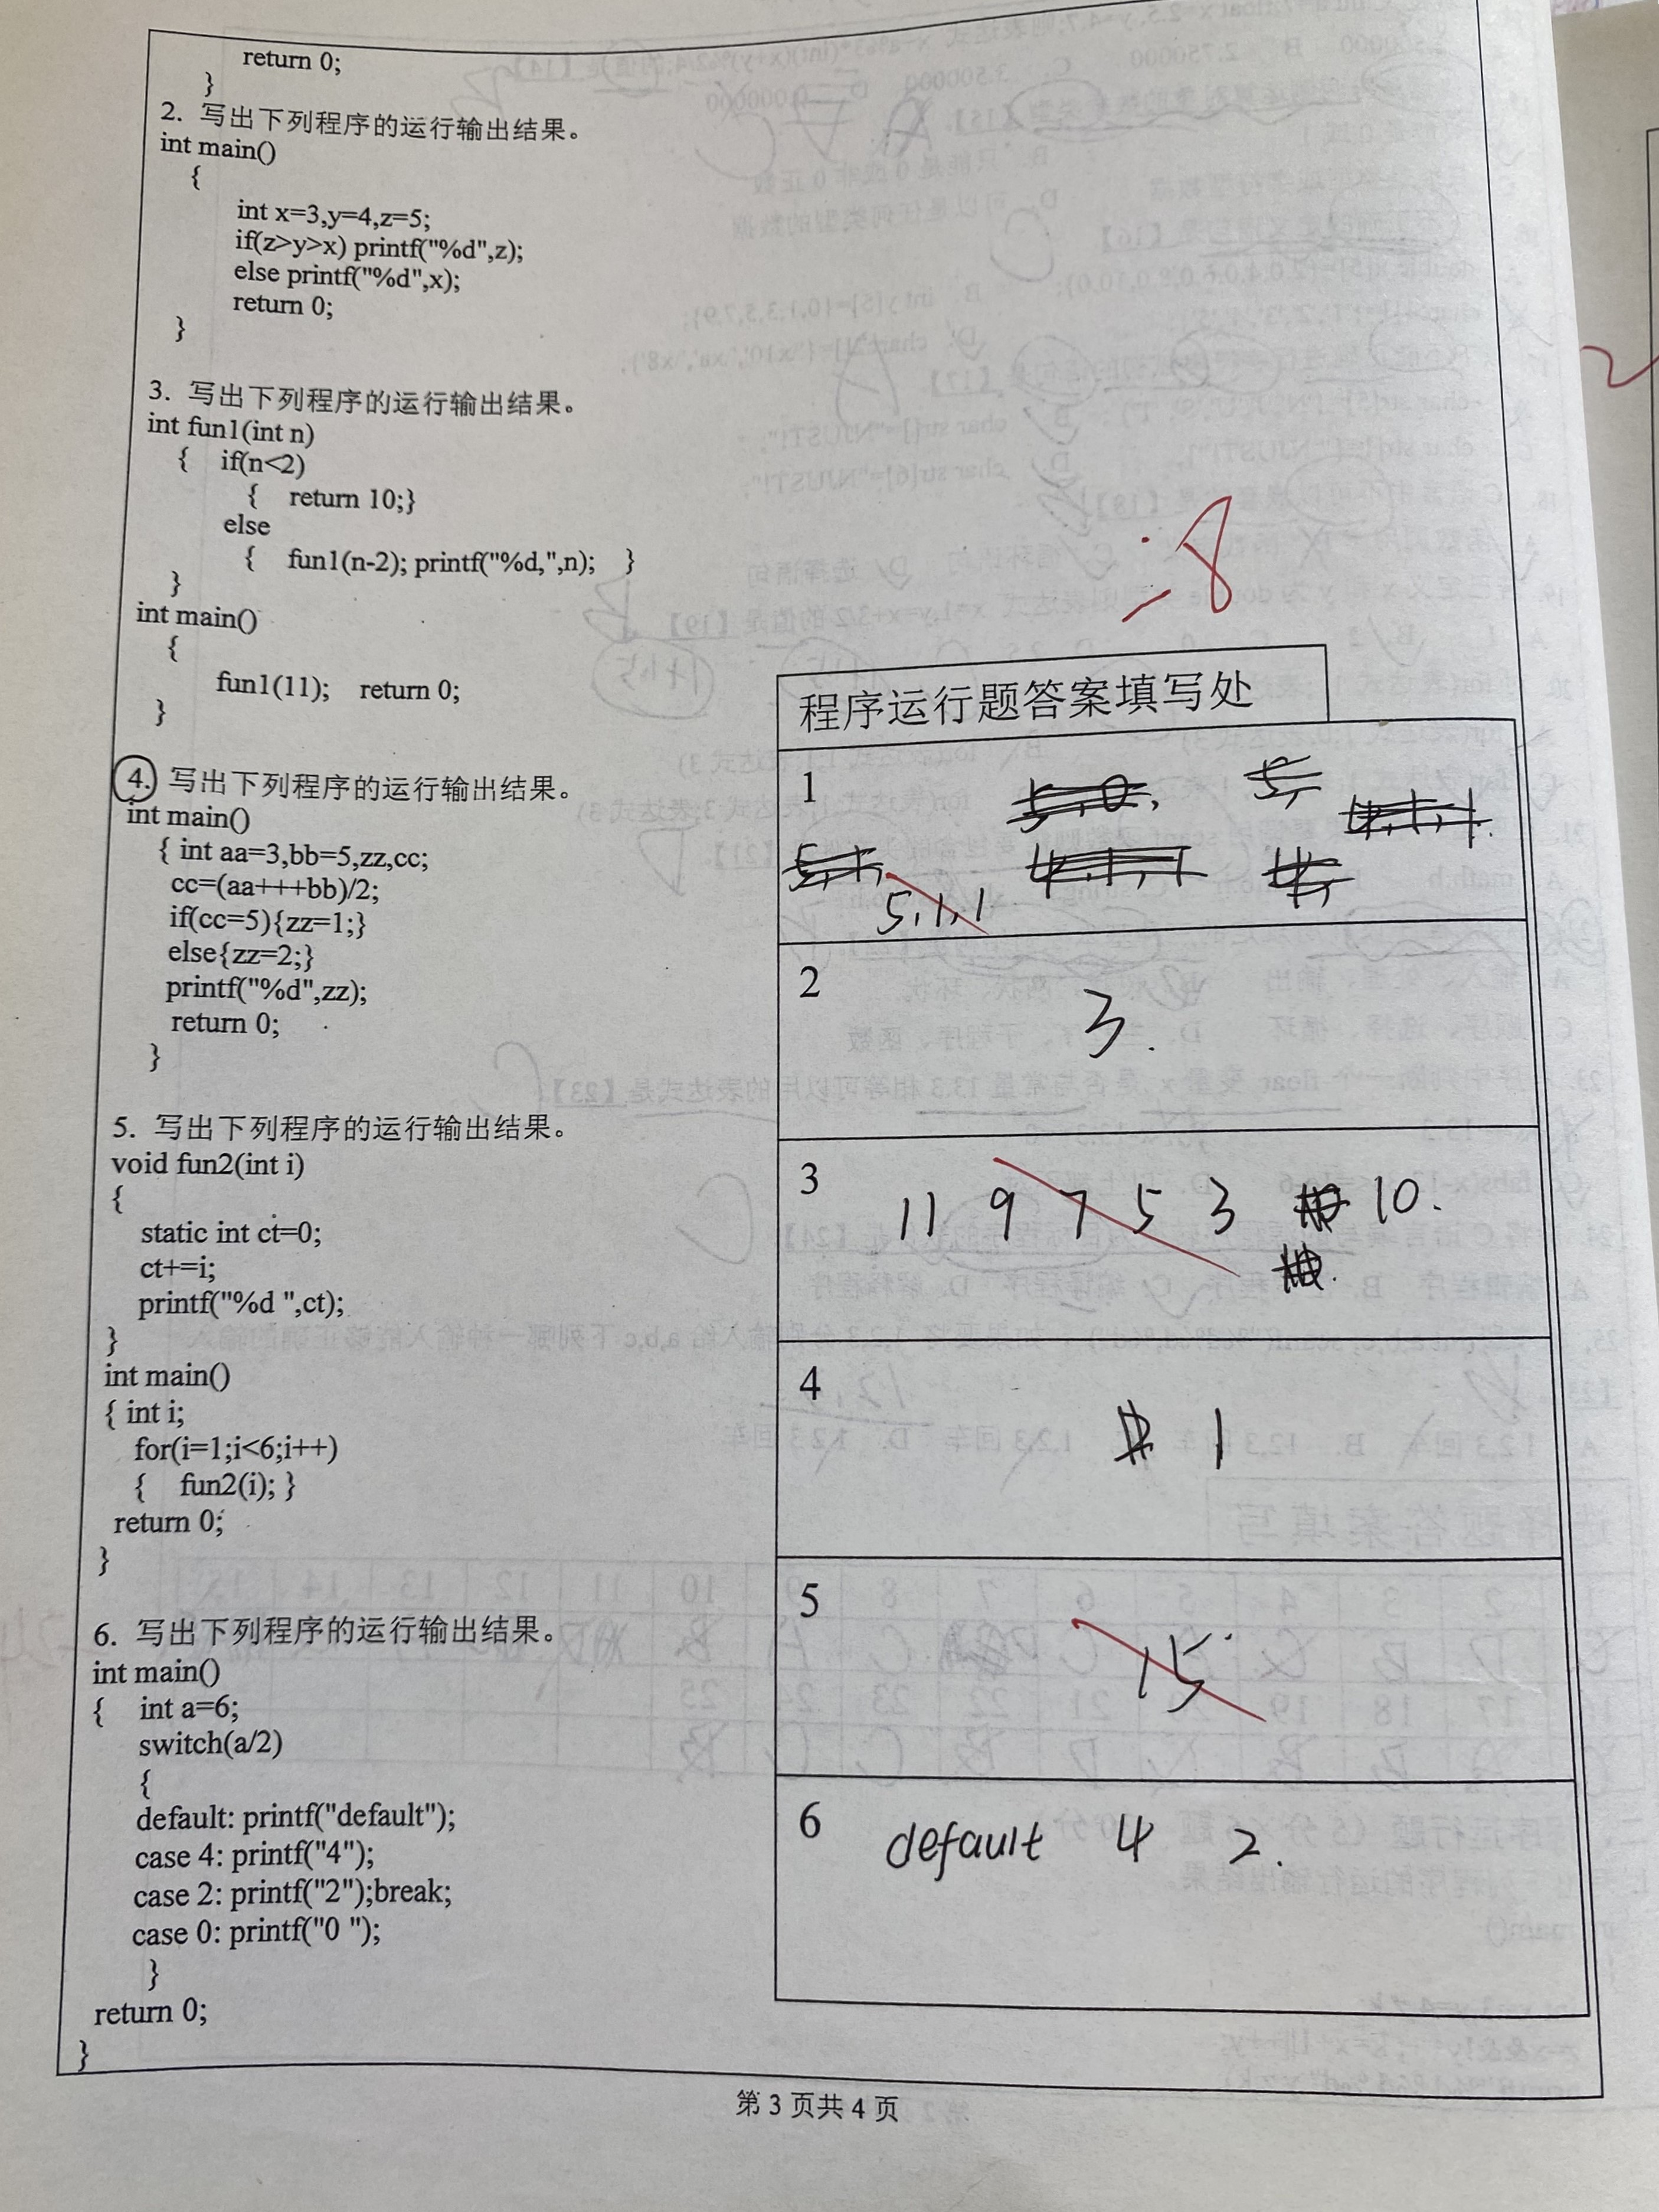 return 0;
}
2. 写出下列程序的运行输出结果。
int main()
{
int x=3,y=4,z=5;
if(z>y>x) printf("%d",z);
else printf("%d",x);
return 0;
}
3. 写出下列程序的运行输出结果。
int fun1(int n)
{ if(n<2)
{ return 10;}
else
{ fun1(n-2); printf("%d,",n); }
}
int main()
{
fun1(11); return 0;
}
4. 写出下列程序的运行输出结果。
int main()
{ int aa=3,bb=5,zz,cc;
cc=(aa+++bb)/2;
if(cc=5){zz=1;}
else{zz=2;}
printf("%d",zz);
return 0;
}
5. 写出下列程序的运行输出结果。
void fun2(int i)
{
static int ct=0;
ct+=i;
printf("%d ",ct);
}
int main()
{ int i;
for(i=1;i<6;i++)
{ fun2(i); }
return 0;
}
6. 写出下列程序的运行输出结果。
int main()
{ int a=6;
switch(a/2)
{
default: printf("default");
case 4: printf("4");
case 2: printf("2");break;
case 0: printf("0 ");
}
return 0;
}
-8
程序运行题答案填写处
1
5,1,1
2
3.
3 11 9 7 5 3 10.
4
1
5
15
6 default 4 2.
第 3 页共 4 页